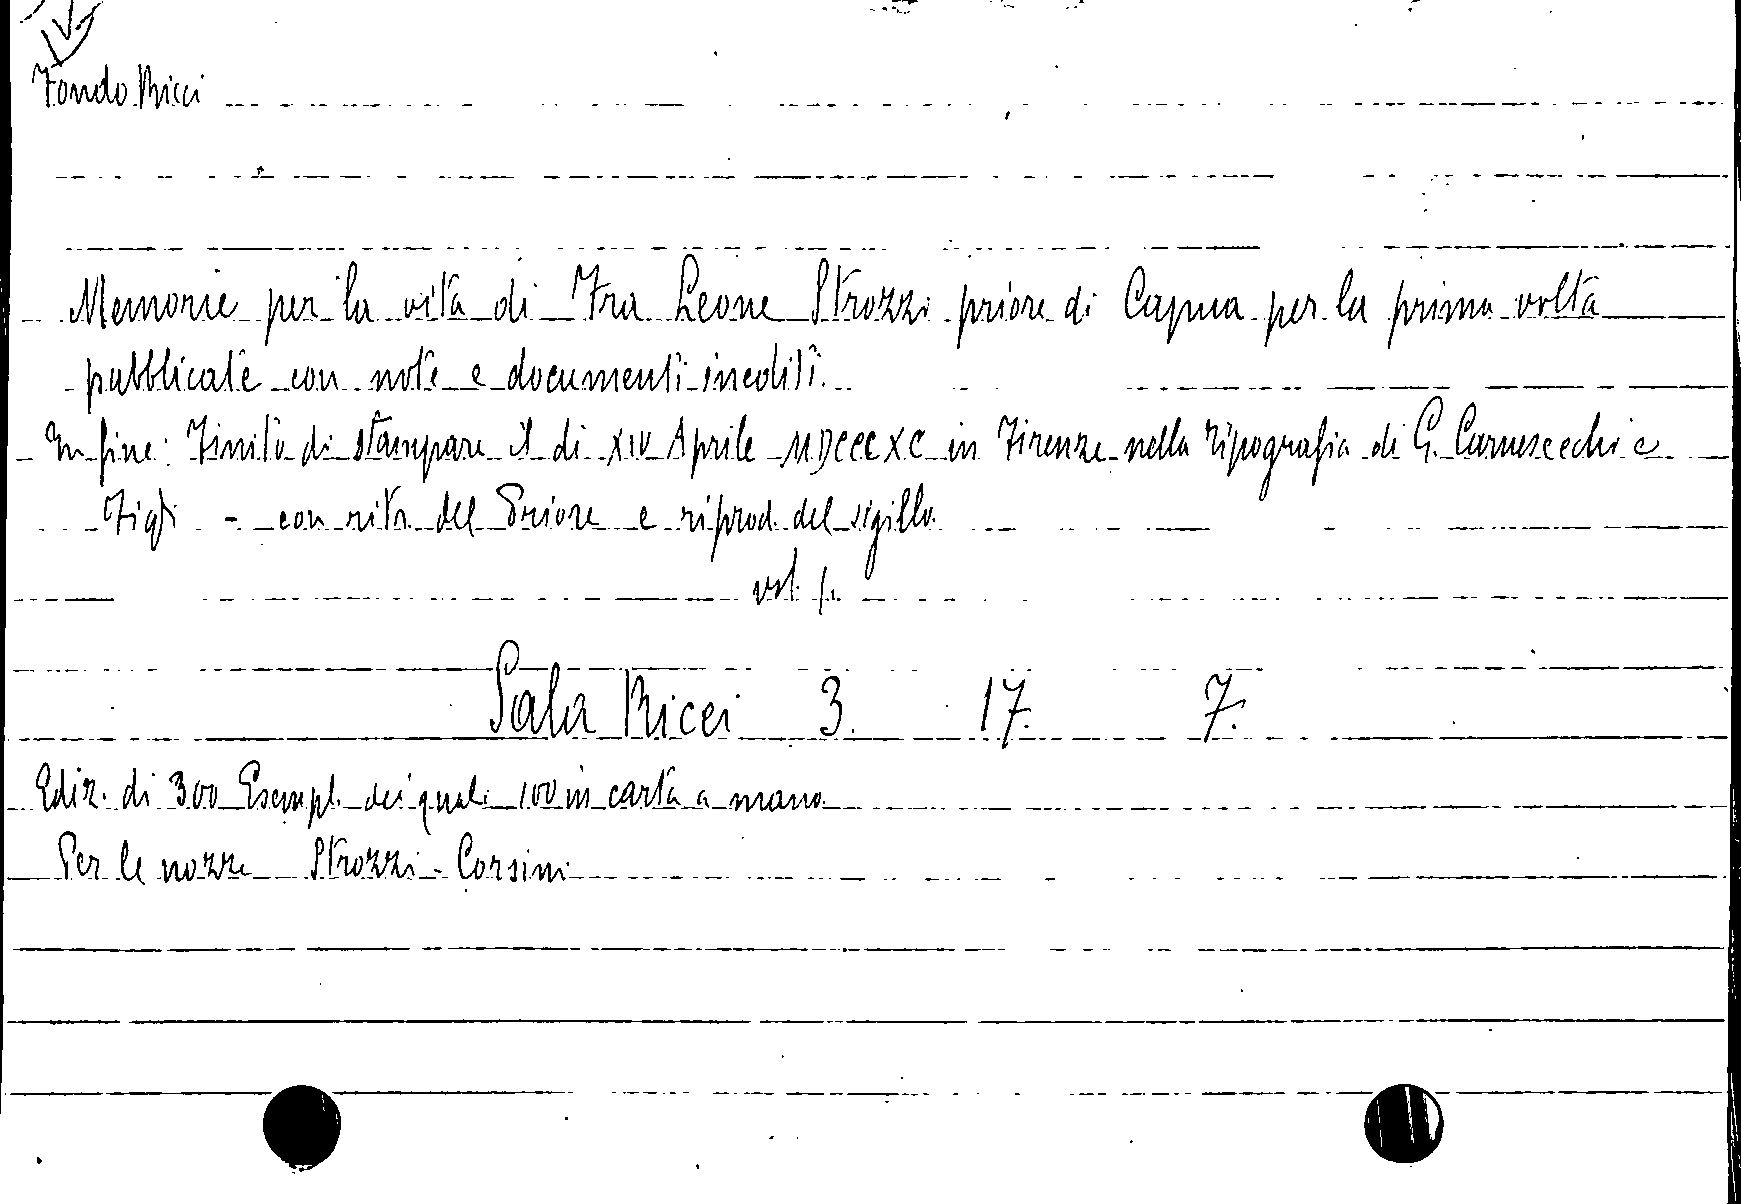 Fondo Ricci
Memorie per la vita di Fra Leone Strozzi priore di Capua per la prima volta
pubblicate con note e documenti inediti.
In fine: Finito di stampare il di XIV Aprile MDCCCXC in Firenze nella Tipografia di G. Carnesecchi e
Figli - con ritr. del Priore e riprod. del sigillo.
vol. 1.
Sala Ricci 3. 17. 7.
Ediz. di 300 Esempl. dei quali 100 in carta a mano
Per le nozze Strozzi - Corsini